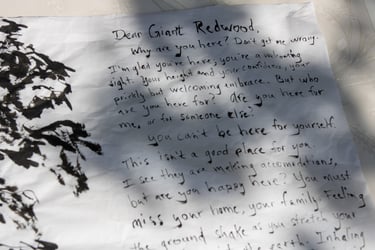 Dear Giant Redwood,
Why are you here? Don't get me wrong.
I'm glad you're here; you're a welcoming
sight. Your height and your confidence, your
prickly but welcoming embrace. But who
are you here for? Are you here for
me, or for someone else?
You can't be here for yourself.
This isn't a good place for you.
I see they are making accomodations,
but are you happy here? You must
miss your home, your family. Feeling
the ground shake as you stretch your
the earth.